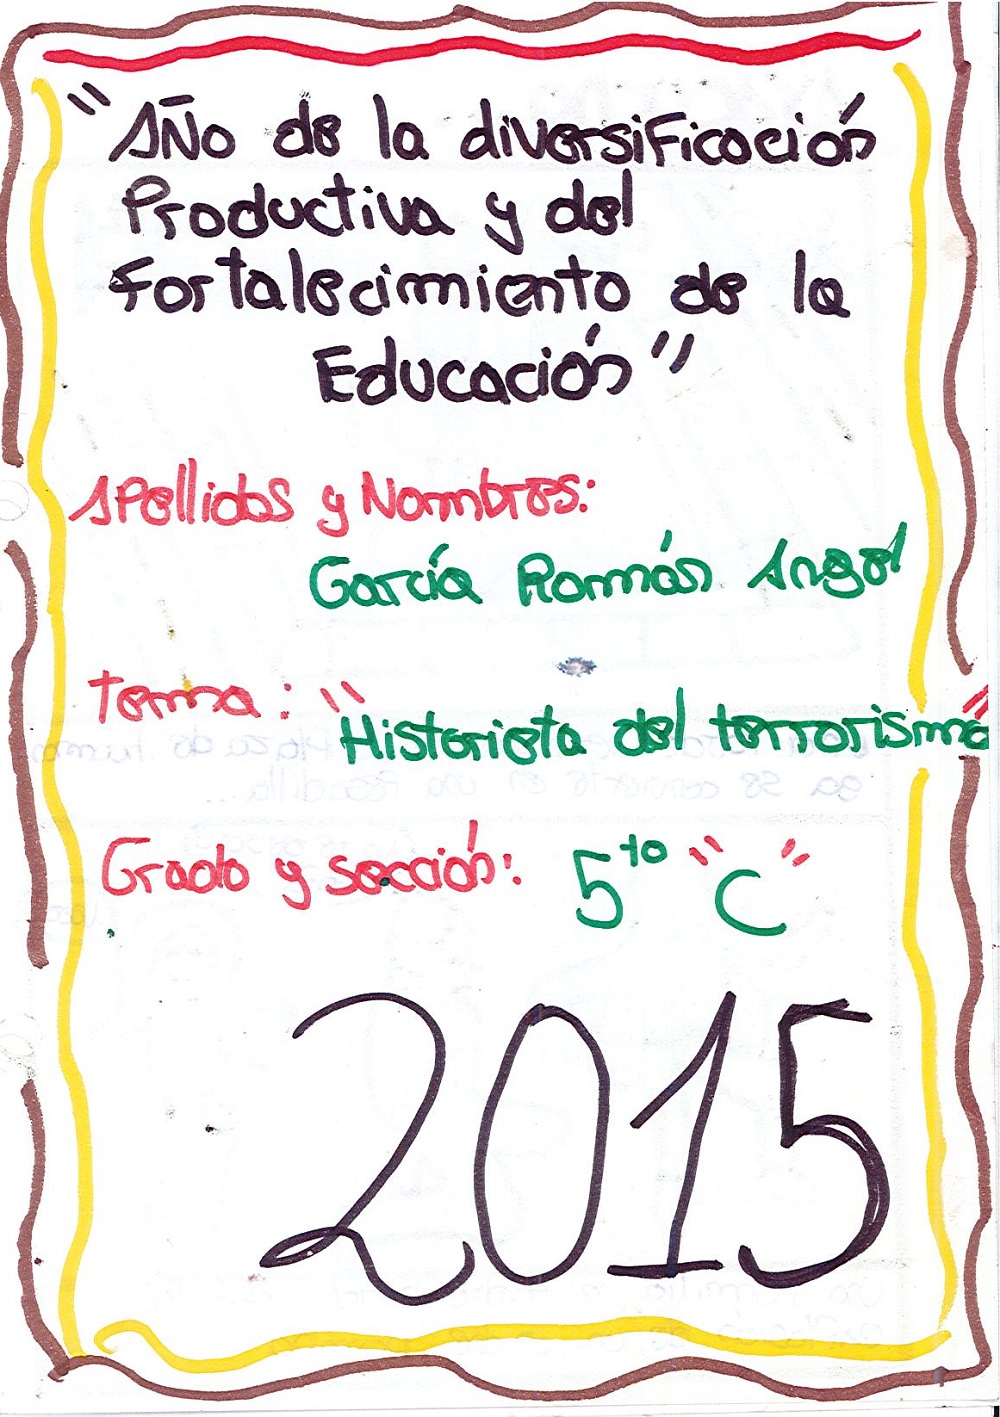 "Año de la diversificación
Productiva y del
Fortalecimiento de la
Educación"
Apellidos y Nombres:
García Román Angel
Tema: "Historieta del terrorismo"
Grado y sección: 5to "C"
2015